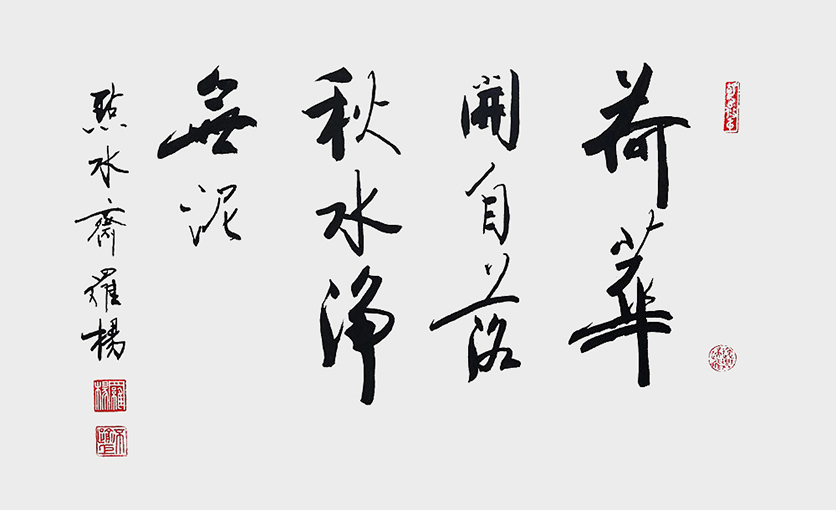 荷華
開自落
秋水淨
無泥
點水齋羅楊
羅楊